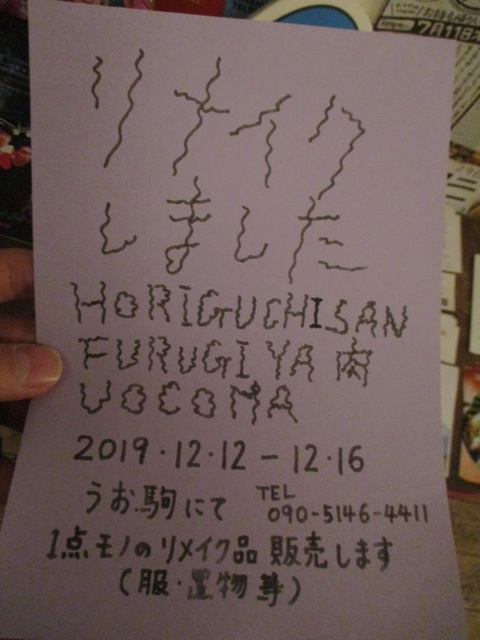 リメイク
しました
HORIGUCHISAN
FURUGIYA 肉
UOCOMA
2019・12・12－12・16
うお駒にて
TEL
090-5146-4411
1点モノのリメイク品 販売します
(服・置物 等)
7月11日